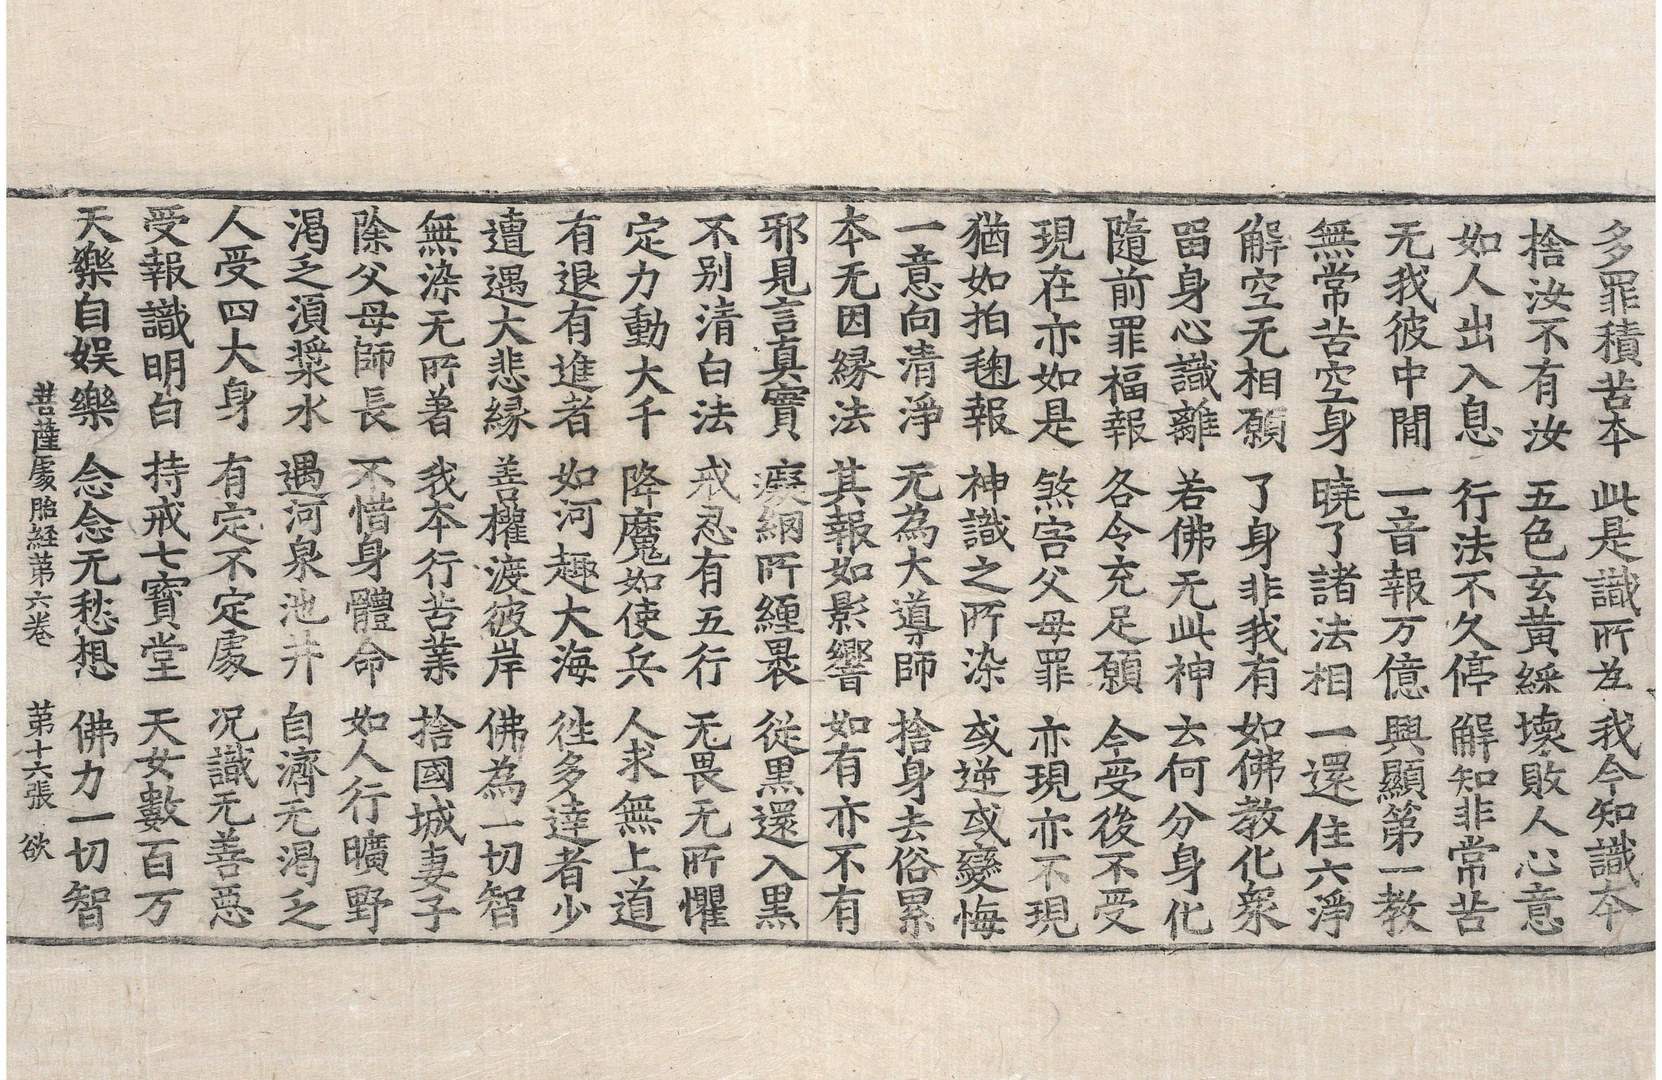 多罪積苦本　此是識所為　我今知識本
捨汝不有汝　五色玄黃綵　壞敗人心意
如人出入息　行法不久停　解知非常苦
无我彼中間　一音報万億　興顯第一教
無常苦空身　曉了諸法相　一還住六淨
解空无相願　了身非我有　如佛教化衆
留身心識離　若佛无此神　去何分身化
隨前罪福報　各令充足願　今受後不受
現在亦如是　煞害父母罪　亦現亦不現
猶如拍毱報　神識之所染　或逆或變悔
一意向清淨　无為大導師　捨身去俗累
本无因縁法　其報如影響　如有亦不有
邪見言真實　癡網所纏裹　從黒還入黒
不别清白法　戒忍有五行　无畏无所懼
定力動大千　降魔如使兵　人求無上道
有退有進者　如河趣大海　徃多達者少
遭遇大悲縁　善權渡彼岸　佛為一切智
無染无所著　我本行苦業　捨國城妻子
除父母師長　不惜身體命　如人行曠野
渴乏湏漿水　遇河泉池井　自濟无渴乏
人受四大身　有定不定處　况識无善惡
受報識明白　持戒七寶堂　天女數百万
天樂自娛樂　念念无愁想　佛力一切智
菩薩處胎経第六卷　第十六張　欲